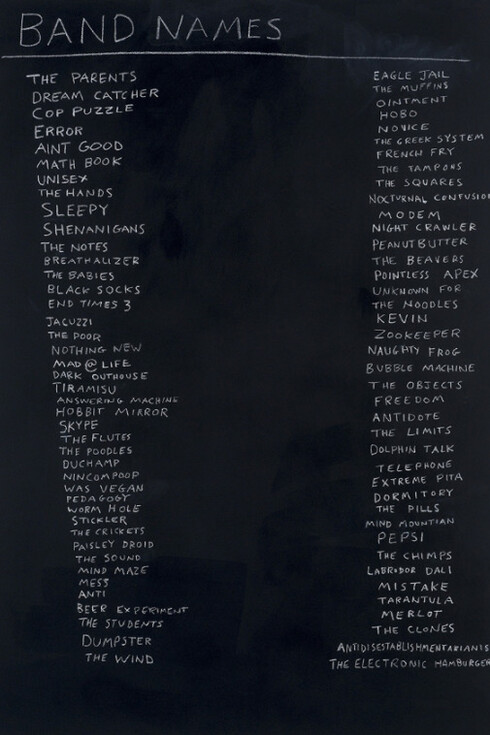 BAND NAMES
THE PARENTS
DREAM CATCHER
COP PUZZLE
ERROR
AINT GOOD
MATH BOOK
UNISEX
THE HANDS
SLEEPY
SHENANIGANS
THE NOTES
BREATHALIZER
THE BABIES
BLACK SOCKS
END TIMES 3
JACUZZI
THE POOR
NOTHING NEW
MAD @ LIFE
DARK OUTHOUSE
TIRAMISU
ANSWERING MACHINE
HOBBIT MIRROR
SKYPE
THE FLUTES
THE POODLES
DUCHAMP
NINCOMPOOP
WAS VEGAN
PEDAGOGY
WORM HOLE
STICKLER
THE CRICKETS
PAISLEY DROID
THE SOUND
MIND MAZE
MESS
ANTI
BEER EXPERIMENT
THE STUDENTS
DUMPSTER
THE WIND
EAGLE JAIL
THE MUFFINS
OINTMENT
HOBO
NOVICE
THE GREEK SYSTEM
FRENCH FRY
THE TAMPONS
THE SQUARES
NOCTURNAL CONFUSION
MODEM
NIGHT CRAWLER
PEANUT BUTTER
THE BEAVERS
POINTLESS APEX
UNKNOWN FOR
THE NOODLES
KEVIN
ZOOKEEPER
NAUGHTY FROG
BUBBLE MACHINE
THE OBJECTS
FREEDOM
ANTIDOTE
THE LIMITS
DOLPHIN TALK
TELEPHONE
EXTREME PITA
DORMITORY
THE PILLS
MIND MOUNTIAN
PEPSI
THE CHIMPS
LABRODOR DALI
MISTAKE
TARANTULA
MERLOT
THE CLONES
ANTIDISESTABLISHMENTARIANIS
THE ELECTRONIC HAMBURGER